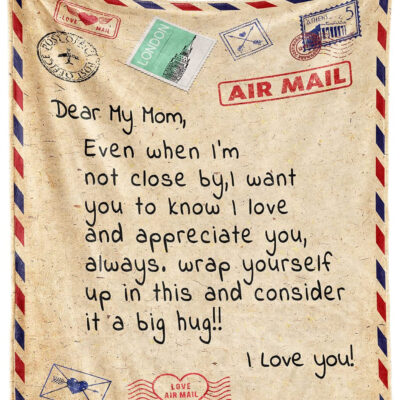 LOVE MAIL
POST STAGE
LONDON
ATHENS 5
AIR MAIL
Dear My Mom,
Even when I'm
not close by,I want
you to know I love
and appreciate you,
always. wrap yourself
up in this and consider
it a big hug!!
I love you!
LOVE
AIR MAIL